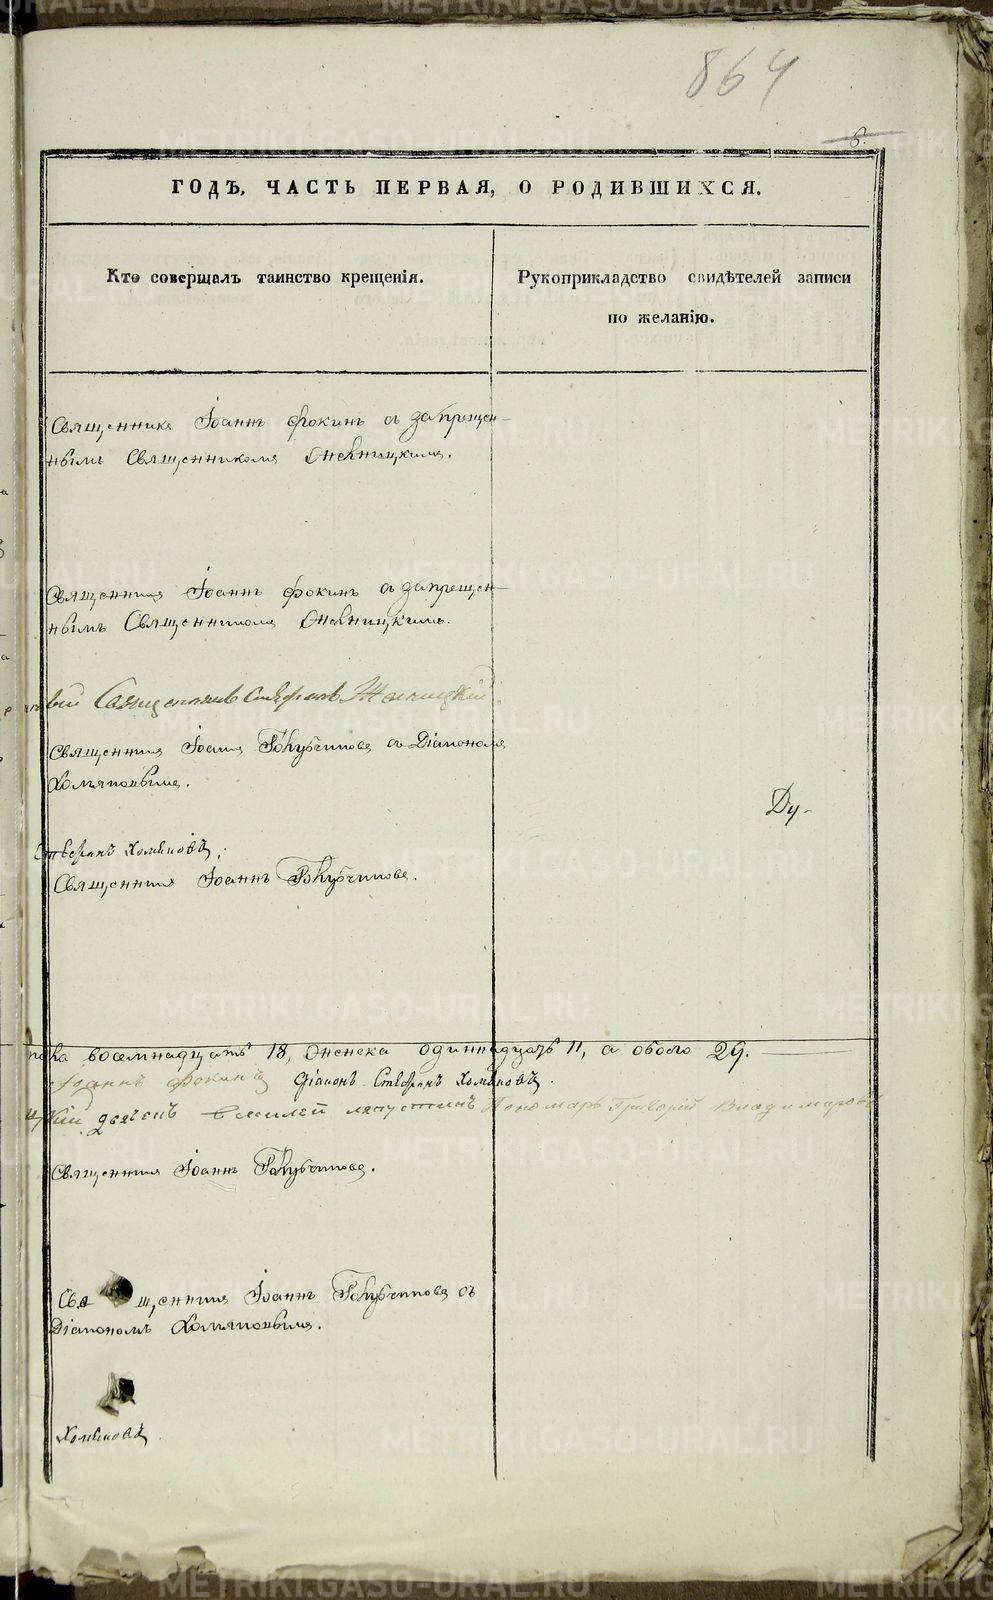 864
6.
ГОДЪ, ЧАСТЬ ПЕРВАЯ, О РОДИВШИХСЯ.
Кто совершалъ таинство крещенія.
Рукоприкладство свидѣтелей записи
по желанію.
Священникъ Іоаннъ Фокинъ съ запрещен-
нымъ Священникомъ
Священникъ Іоаннъ Фокинъ съ запрещен-
нымъ Священникомъ
Священникъ Стефанъ
Священникъ Іоаннъ съ Діакономъ
Хомяковымъ.
Ду-
Стефанъ Хомяковъ.
Священникъ Іоаннъ
пола восемнадцать 18, женска одиннадцать 11, а обоего 29.
Іоаннъ Фокинъ Діаконъ Стефанъ Хомяковъ.
цкій дьячекъ Василей Пономарь Григорій Владимировъ
Священникъ Іоаннъ
Священникъ Іоаннъ съ
Діакономъ Хомяковымъ.
Хомяковъ
METRIKI.GASO-URAL.RU